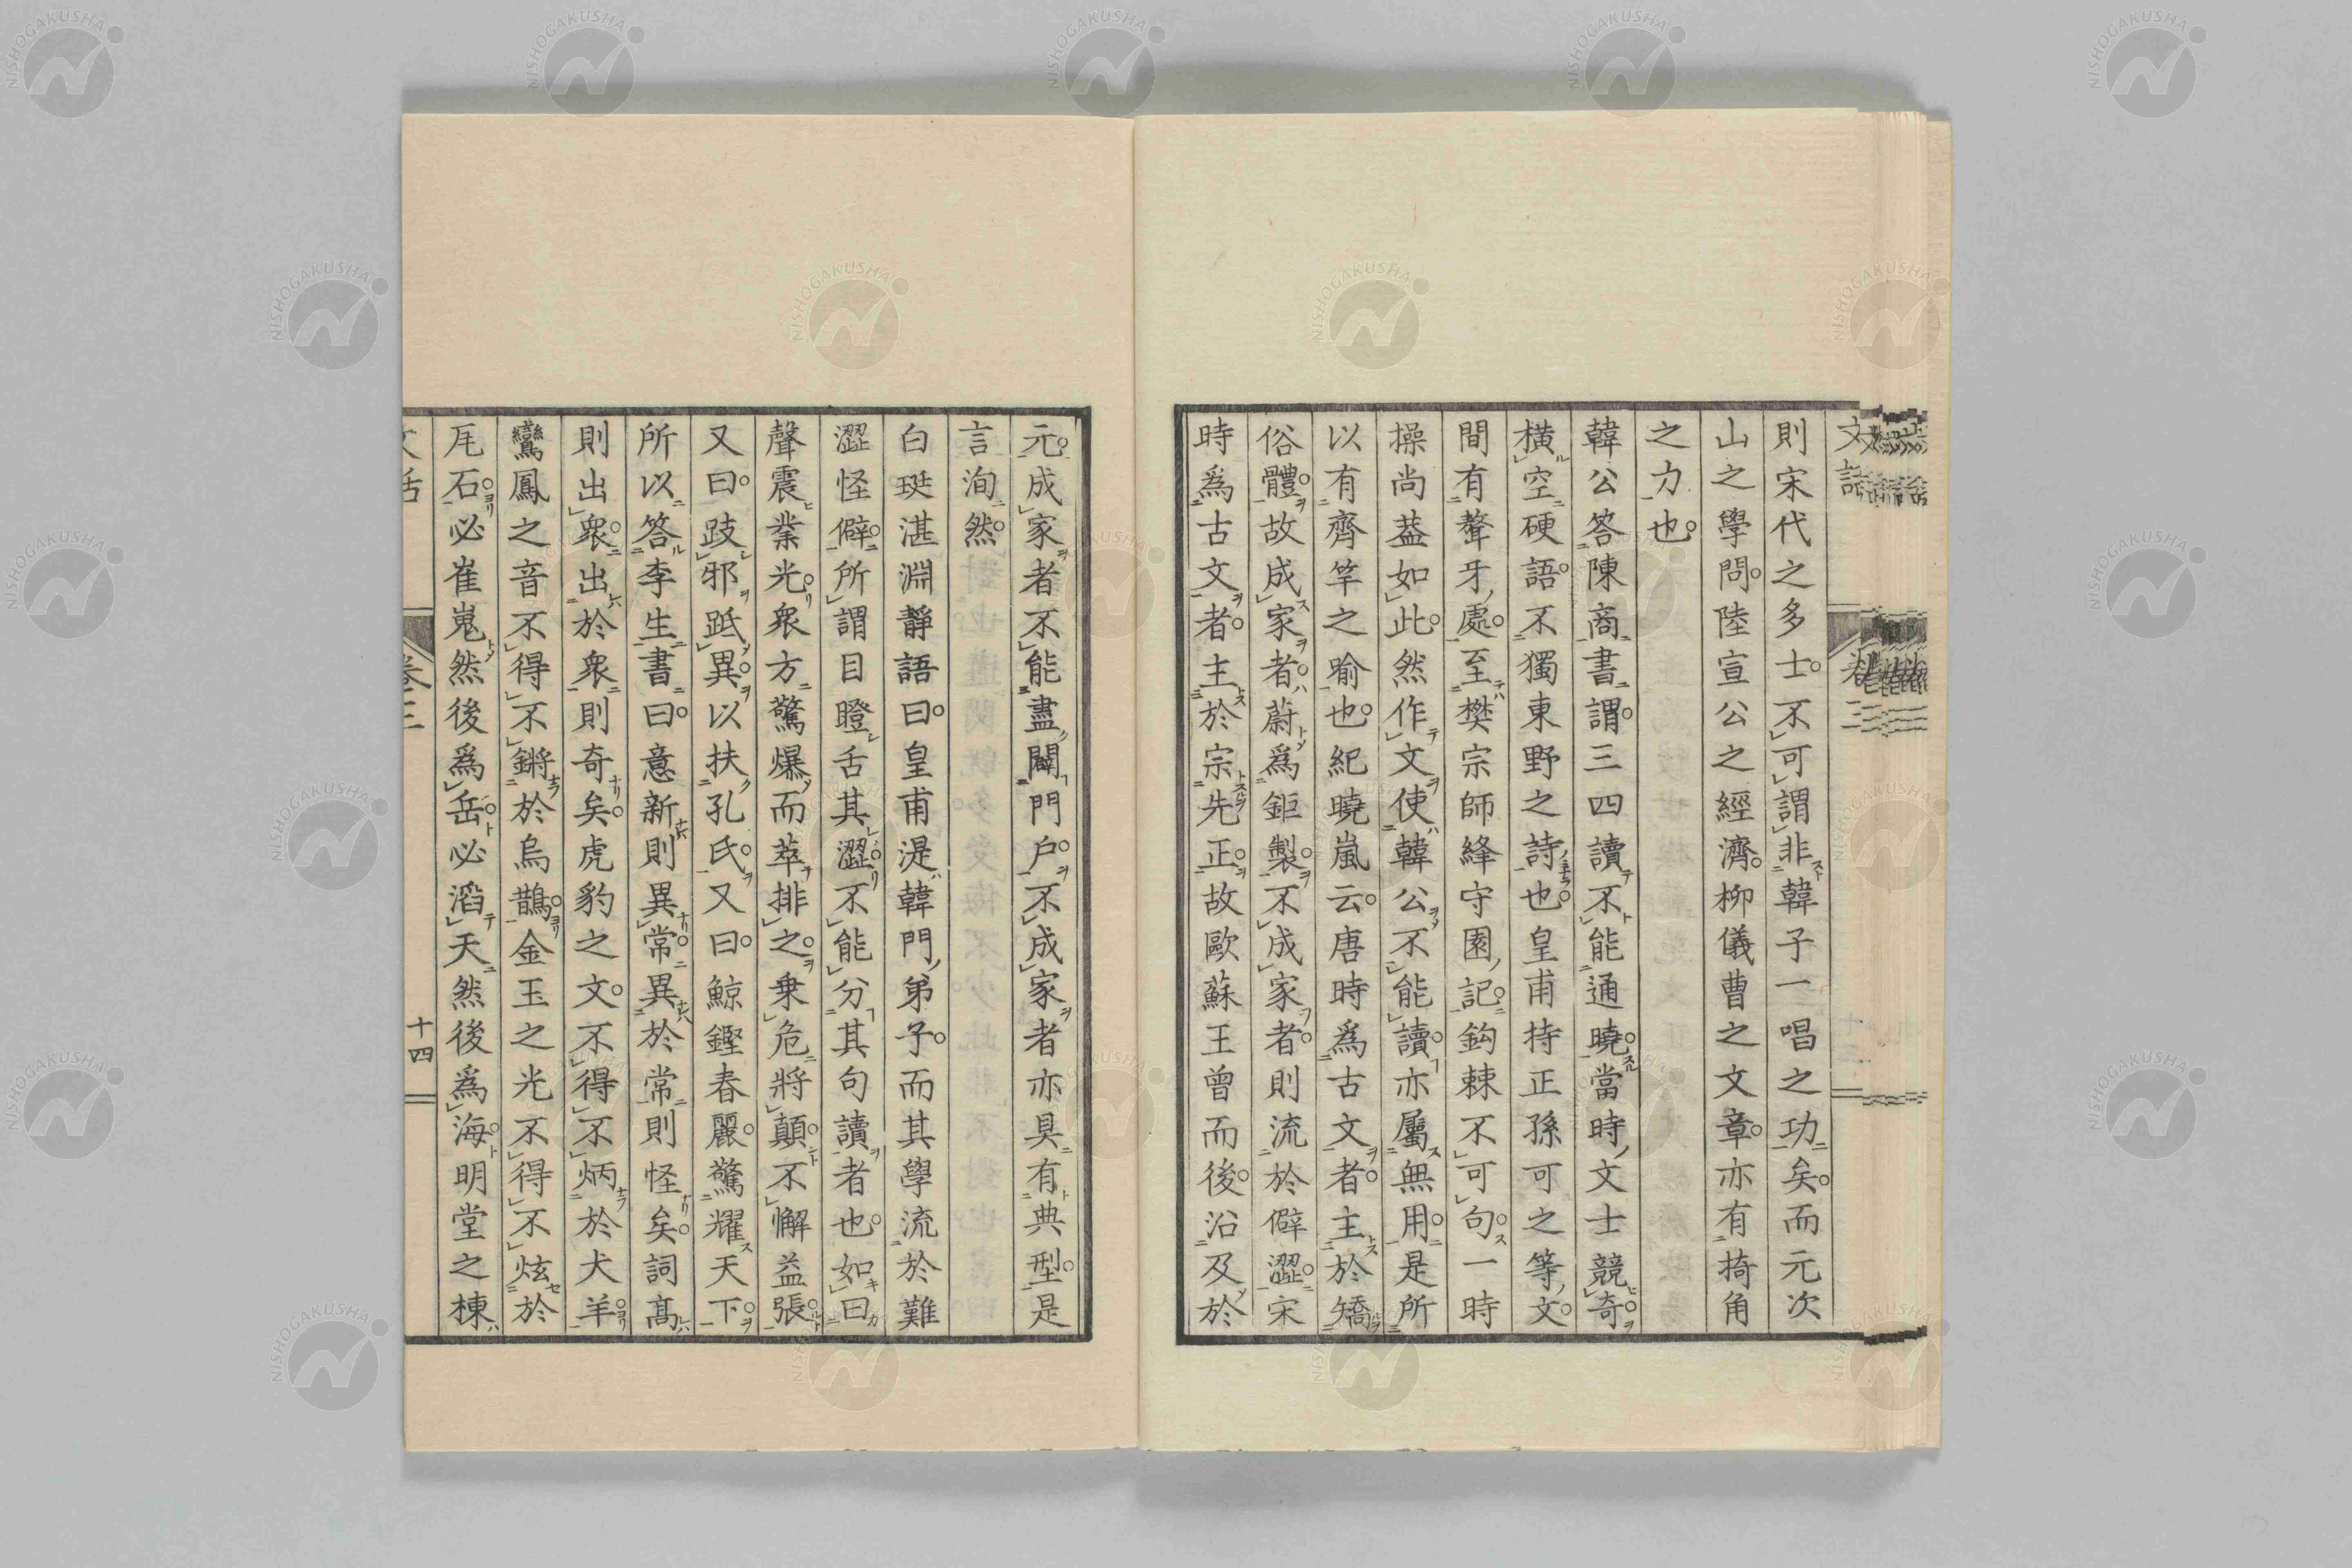 則宋代之多士。不可謂非韓子一唱之功矣。而元次
山之學問。陸宣公之經濟。柳儀曹之文章。亦有掎角
之力也。
韓公答陳商書。謂三四讀不能通曉。當時文士競奇。
橫空硬語。不獨東野之詩也。皇甫持正孫可之等文。
間有聱牙處。至樊宗師絳守園記。鈎棘不可句。一時
操尚葢如此。然作文使韓公不能讀。亦屬無用。是所
以有齊竽之喻也。紀曉嵐云。唐時爲古文者。主於矯
俗體。故成家者。蔚爲鉅製。不成家者。則流於僻澀。宋
時爲古文者。主於宗先正。故歐蘇王曾而後。沿及於
元。成家者不能盡闢門戶。不成家者亦具有典型。是
言洵然。
白珽湛淵靜語曰。皇甫湜韓門弟子。而其學流於難
澀怪僻。所謂目瞪舌其澀。不能分其句讀者也。如曰
聲震業光。衆方驚爆而萃排之。乘危將顛。不懈益張。
又曰。跂邪觝異。以扶孔氏。又曰。鯨鏗春麗。驚耀天下。
所以答李生書曰。意新則異常。異於常則怪矣。詞高
則出衆。出於衆則奇矣。虎豹之文。不得不炳於犬羊。
鸞鳳之音不得不鏘於烏鵲。金玉之光不得不炫於
瓦石。必崔嵬然後爲岳。必滔天然後爲海。明堂之棟
文話
卷三
十四
文話
卷三
NISHOGAKUSHA